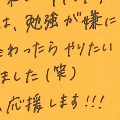 は、勉強が嫌に
わったら やりたい
ました(笑)
応援します!!!